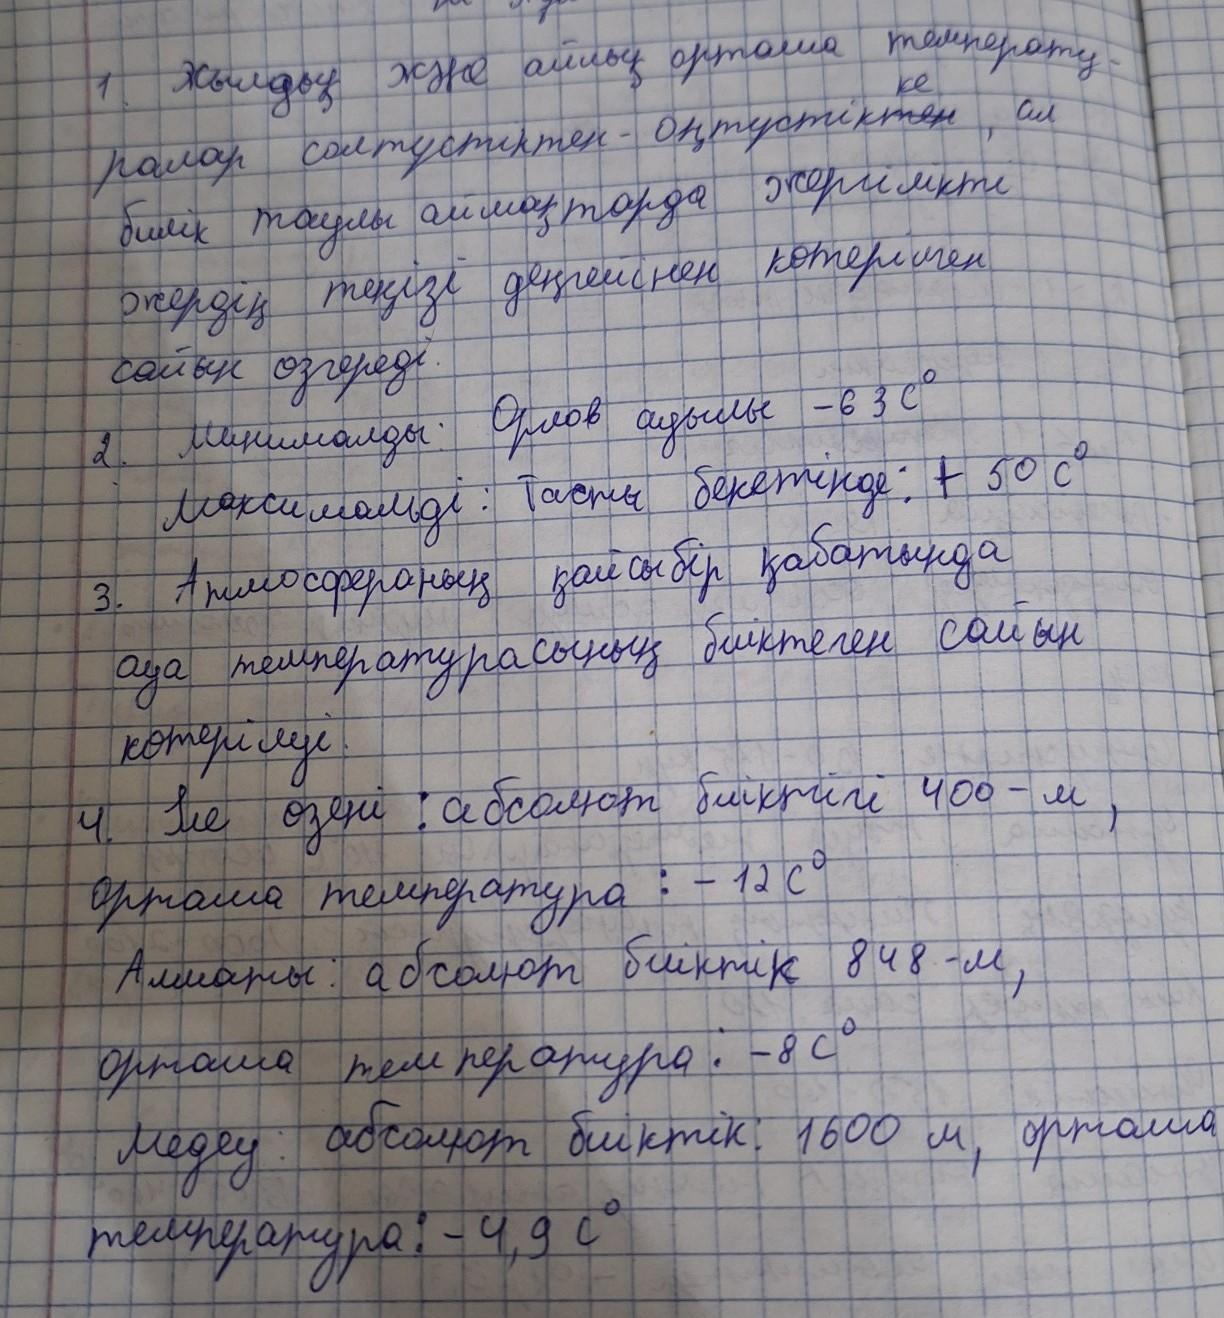 1. Жылдық және айлық орташа температу-
ралар солтүстіктен - оңтүстіктен ке, ал
биік таулы аймақтарда жергілікті
жердің теңізі деңгейінен көтерілген
сайын өзгереді.
2. Минималды: Орлов ауылы -63 С°
Максимальді: Тасты бекетінде: + 50 С°
3. Атмосфераның қайсыбір қабатында
ауа температурасының биіктеген сайын
көтерілуі.
4. Іле өзені: абсолют биіктігі 400-м,
орташа температура: -12 С°
Алматы: абсолют биіктік 848-м,
орташа температура: -8 С°
Медеу: абсолют биіктік: 1600 м, орташа
температура: -4,9 С°